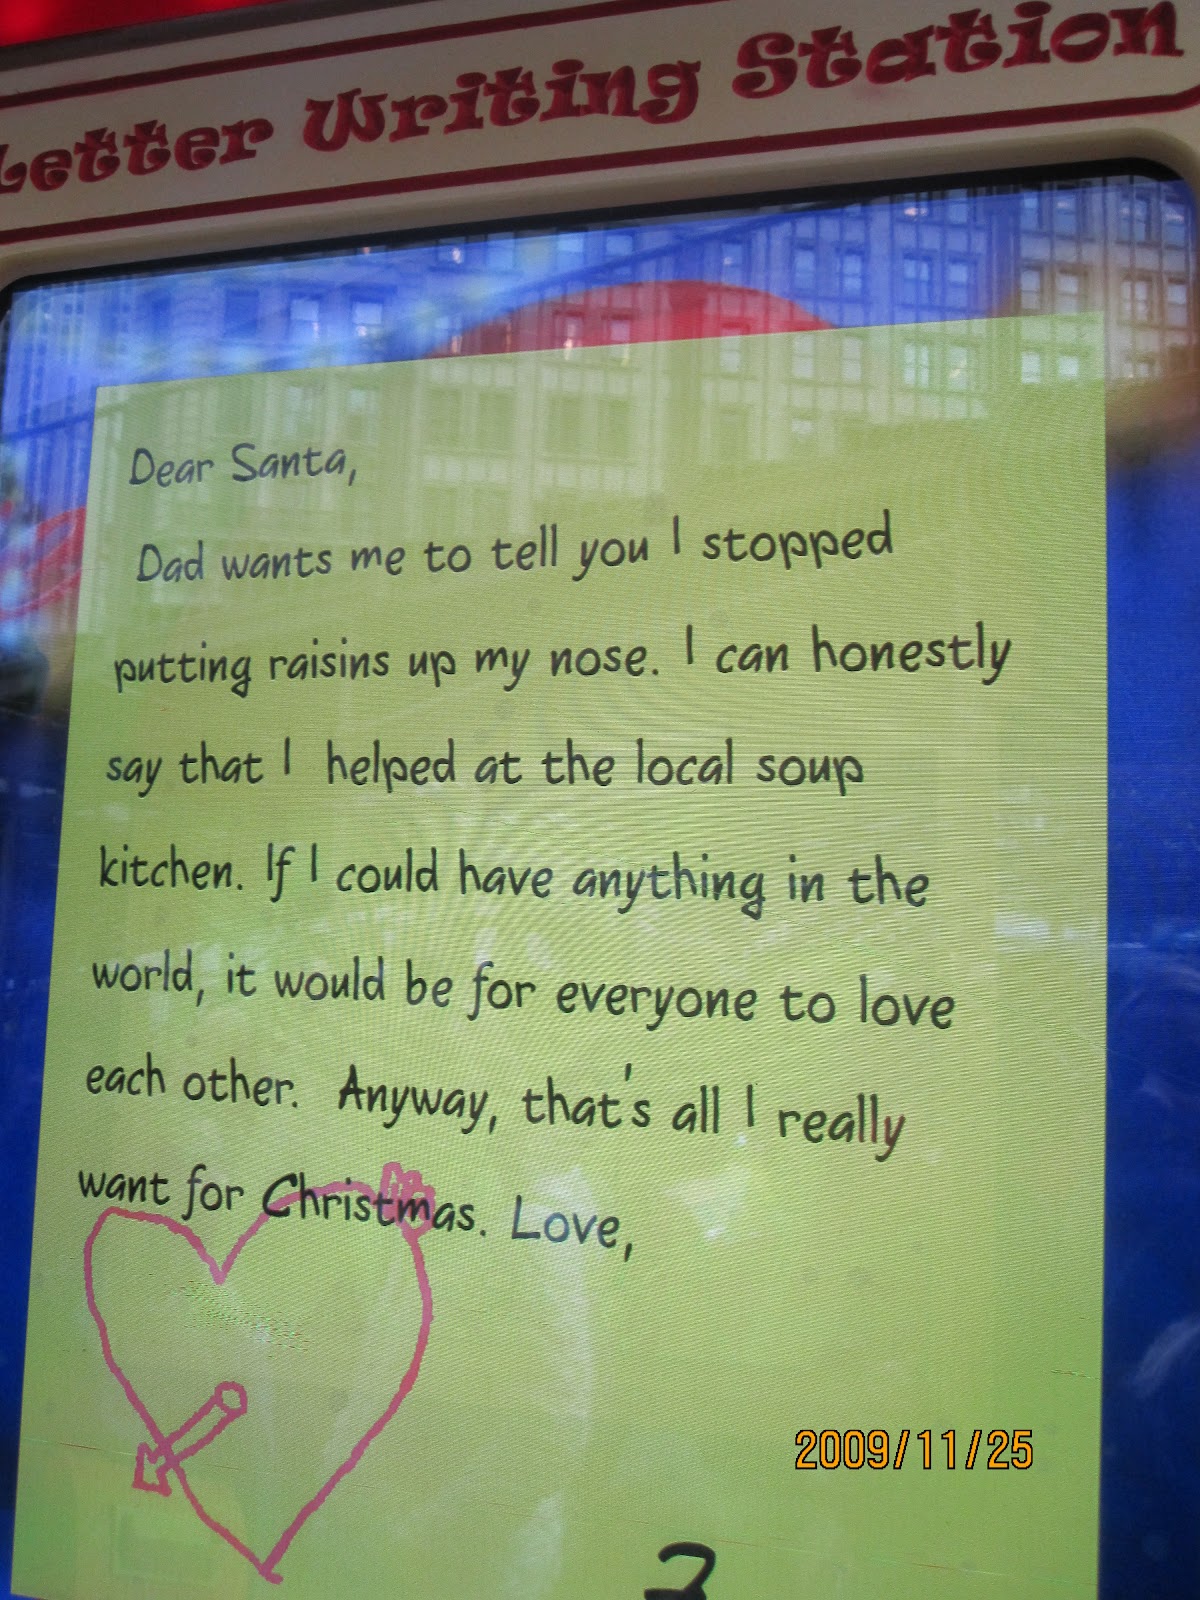 Letter Writing Station
Dear Santa,
Dad wants me to tell you I stopped
putting raisins up my nose. I can honestly
say that I helped at the local soup
kitchen. If I could have anything in the
world, it would be for everyone to love
each other. Anyway, that's all I really
want for Christmas. Love,
2009/11/25